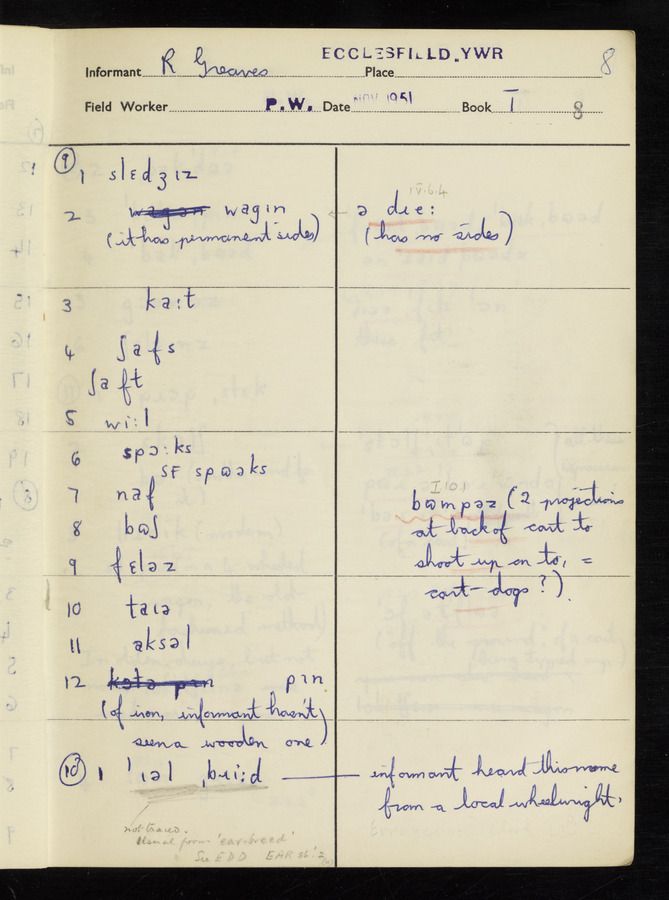 ECCLESFIELD.YWR
Informant R Greaves Place 8
Field Worker P.W. Date NOV 1951 Book I 8
⑨ 1 slɛdʒɪz
IV.6.4
2 wagɪn ← ə dɪɛ:
(it has permanent sides) (has no sides)
3 ka:t
4 ʃafs
ʃaft
5 wi:l
6 spɔ:ks
SF spɷəks
7 naf
I 10 1
bɷmpəz (2 projections
8 bɷʃ
at back of cart to
9 fɛləz
shoot up on to, =
cart-dogs?).
10 taɪə
11 aksəl
12 pɪn
(of iron, informant hasn't
seen a wooden one)
⑩ 1 ˈɪəl ˌbɹi:d — informant heard this name
from a local wheelwright.
not traced.
Usual form 'ear-breed'
See EDD EAR sb.